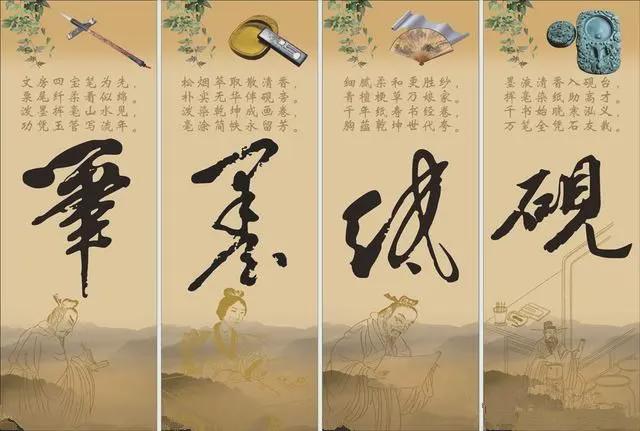 文房四宝笔为先，
束尾纤柔看似绵。
泼墨挥毫山水见，
功凭玉管写流年。
筆
松烟萃取散清香，
朴尖无华伴砚旁。
泼染乾坤成画卷，
毫涂简帙永留芳。
墨
细腻柔和更胜纱，
青檀梗草万娘家。
千年纸寿书经卷，
胸蕴乾坤世代夸。
纸
墨液清香入砚台，
挥染纸助高才。
千书始晓泓义，
万笔全凭石友载。
砚